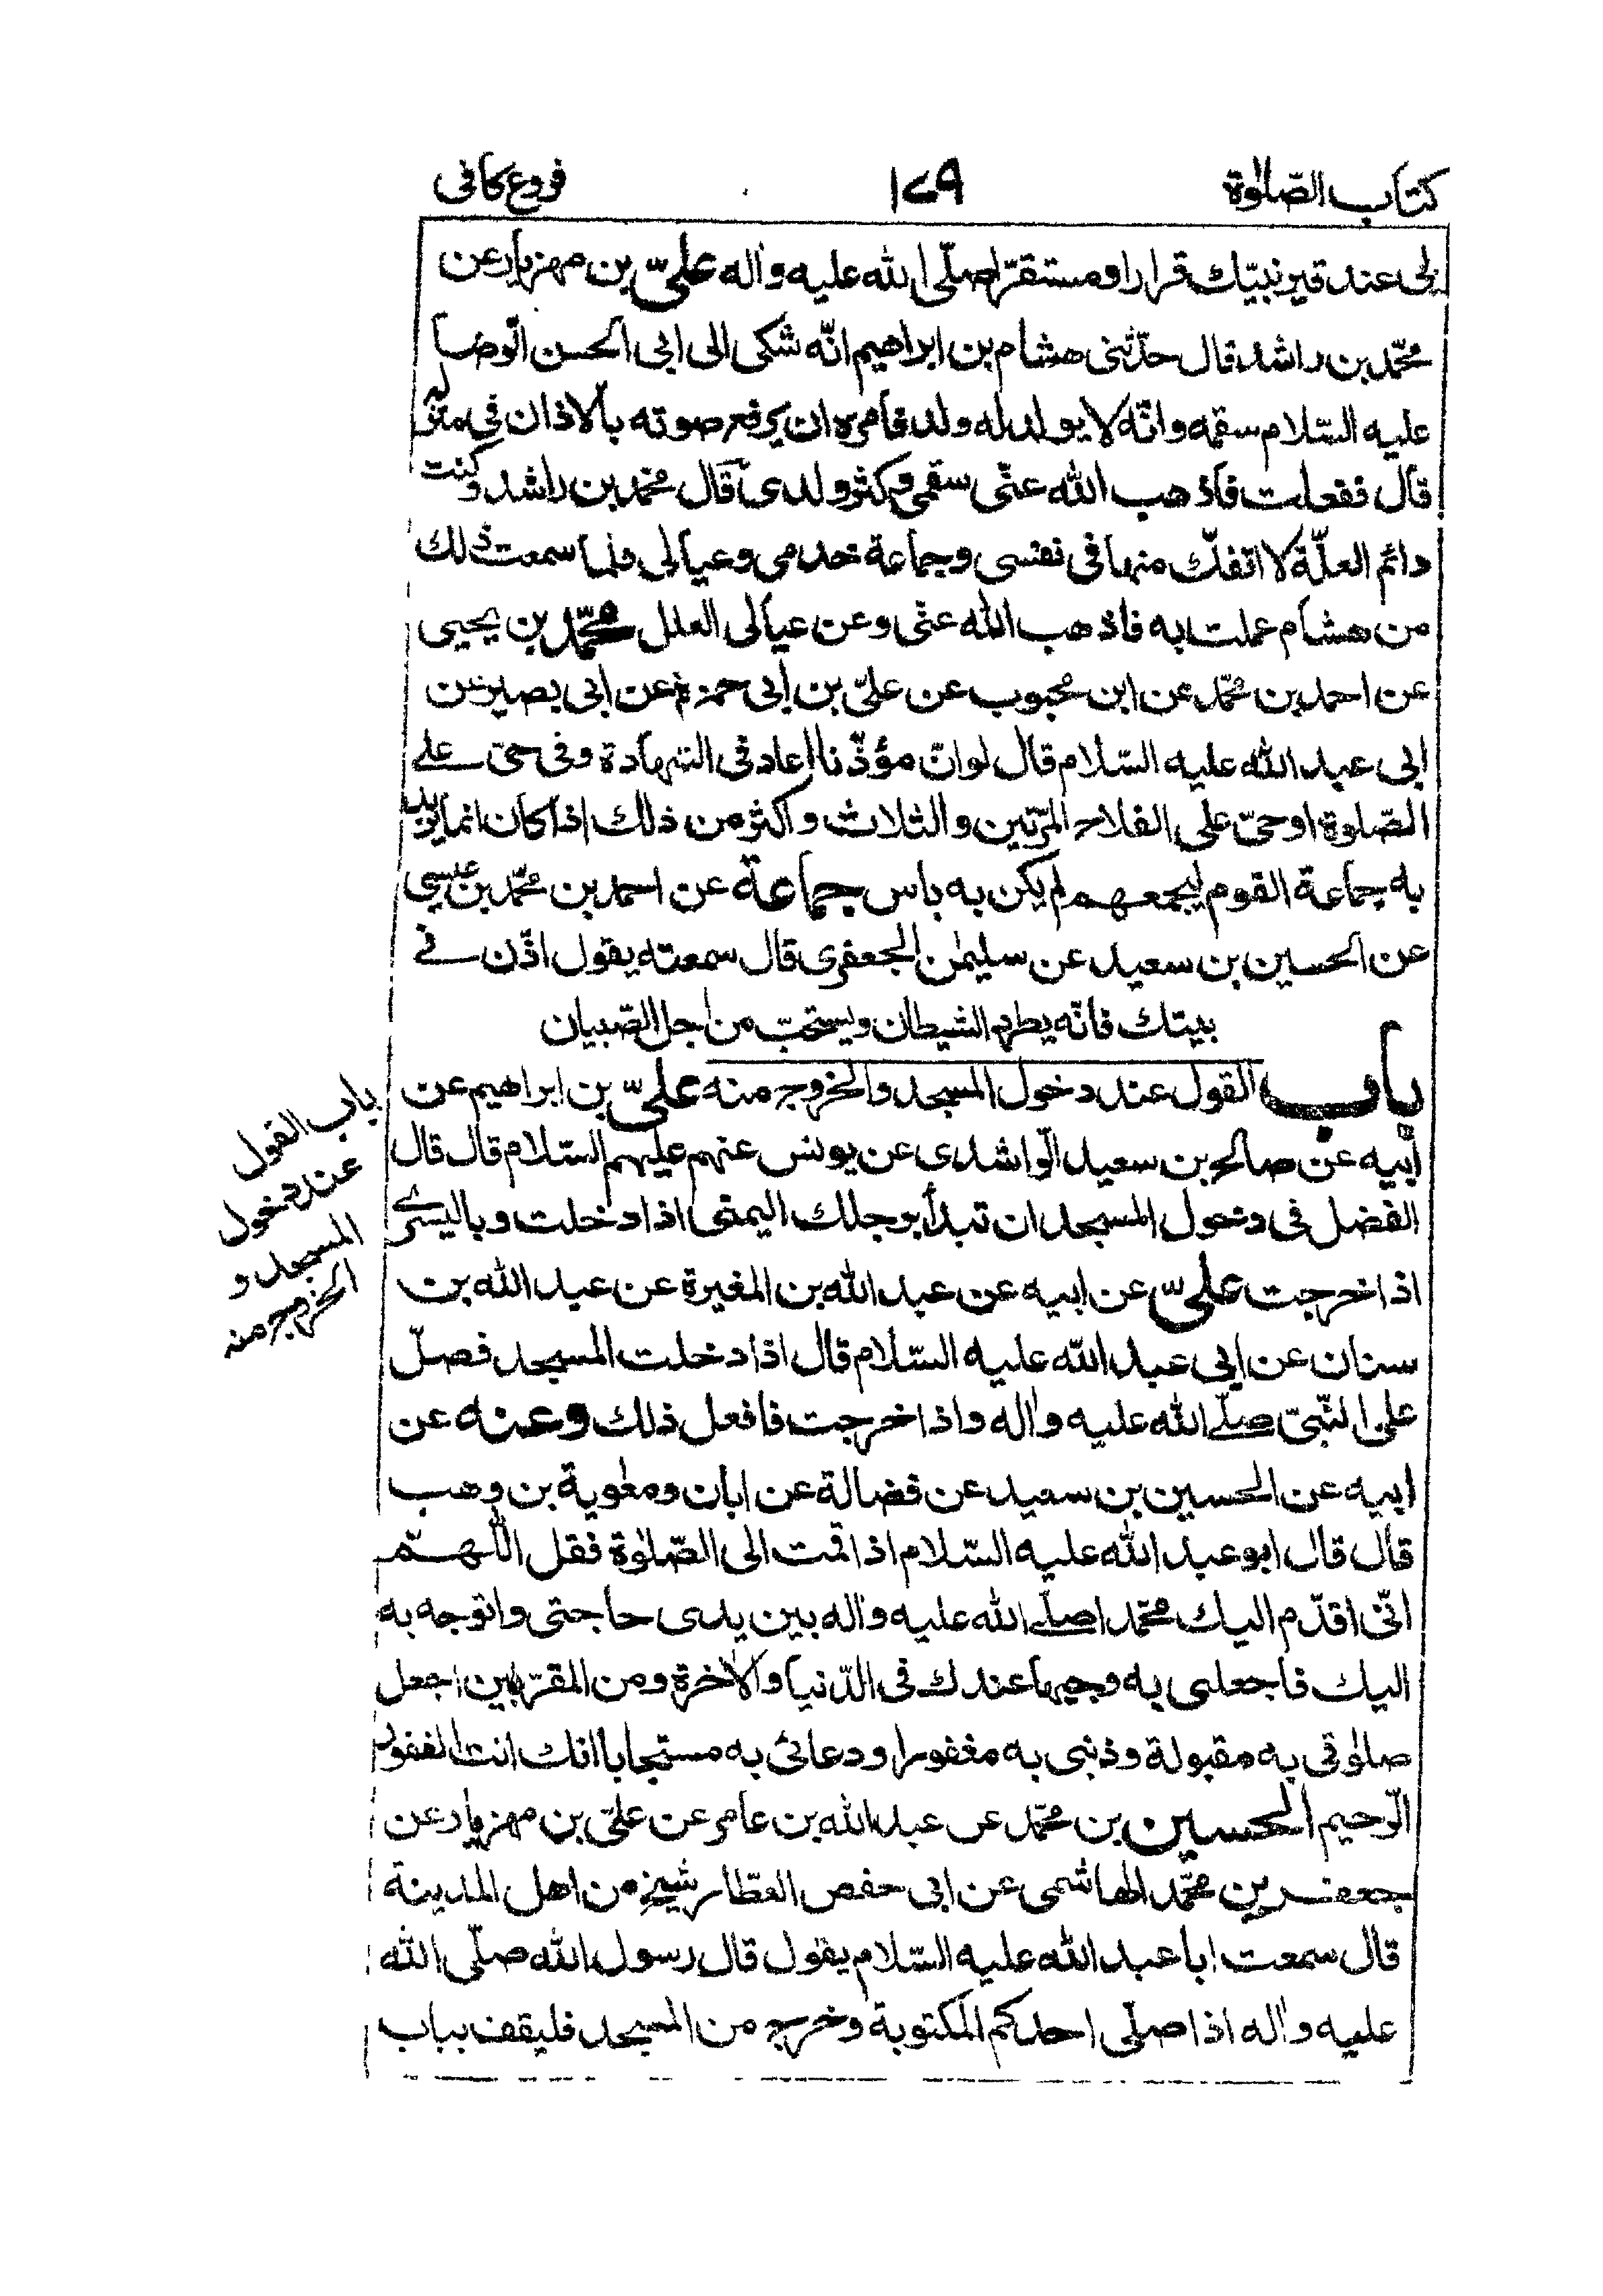 كتاب الصّلوٰة ١٧٩ فروع كافى
لى عند قبر نبيّك قرارا ومستقرّا صلّى الله عليه واٰله علىّ بن مهزيار عن
محمّد بن راشد قال حدّثنى هشام بن ابراهيم انّه شكى الى ابى الحسن الرّضا
عليه السّلام سقمه وانّه لا يولد له ولد فامره ان يرفع صوته بالاذان فى منزله
قال ففعلت فاذهب الله عنّى سقمى وكثر ولدى قال محمّد بن راشد وكنت
دائم العلّة لا اتفكّ منها فى نفسى وجماعة خدمى وعيالى فلما سمعت ذلك
من هشام عملت به فاذهب الله عنّى وعن عيالى العلل محمّد بن يحيى
عن احمد بن محمّد عن ابن محبوب عن علىّ بن ابى حمزة عن ابى بصير عن
ابى عبد الله عليه السّلام قال لو انّ مؤذّنا اعاد فى الشهادة وفى حىّ على
الصّلوة او حىّ على الفلاح المرّتين والثلاث واكثر من ذلك اذا كان انما يريد
به جماعة القوم ليجمعهم لم يكن به باس جماعة عن احمد بن محمّد بن عيسى
عن الحسين بن سعيد عن سليمٰن الجعفرى قال سمعته يقول اذّن فى
بيتك فانّه يطرد الشيطان ويستحبّ من اجل الصّبيان
باب القول عند دخول المسجد والخروج منه علىّ بن ابراهيم عن
ابيه عن صالح بن سعيد الرّاشدى عن يونس عنهم عليهم السّلام قال قال
الفضل فى دخول المسجد ان تبدأ برجلك اليمنى اذا دخلت وباليسرى
اذا خرجت علىّ عن ابيه عن عبد الله بن المغيرة عن عبد الله بن
سنان عن ابى عبد الله عليه السّلام قال اذا دخلت المسجد فصلّ
على النّبىّ صلّى الله عليه واٰله واذا خرجت فافعل ذلك وعنه عن
ابيه عن الحسين بن سعيد عن فضالة عن ابان ومعٰوية بن وهب
قال قال ابو عبد الله عليه السّلام اذا قمت الى الصّلوٰة فقل اللّهمّ
انّى اقدّم اليك محمّدا صلّى الله عليه واٰله بين يدى حاجتى واتوجه به
اليك فاجعلنى به وجيها عندك فى الدّنيا والاٰخرة ومن المقرّبين اجعل
صلوٰتى به مقبولة وذنبى به مغفورا ودعائى به مستجابا انك انت الغفور
الرّحيم الحسين بن محمّد عن عبد الله بن عامر عن علىّ بن مهزيار عن
جعفر بن محمّد الهاشمى عن ابى حفص العطّار شيخ من اهل المدينة
قال سمعت ابا عبد الله عليه السّلام يقول قال رسول الله صلّى الله
عليه واٰله اذا صلّى احدكم المكتوبة وخرج من المسجد فليقف بباب
باب القول
عند دخول
المسجد و
الخروج منه